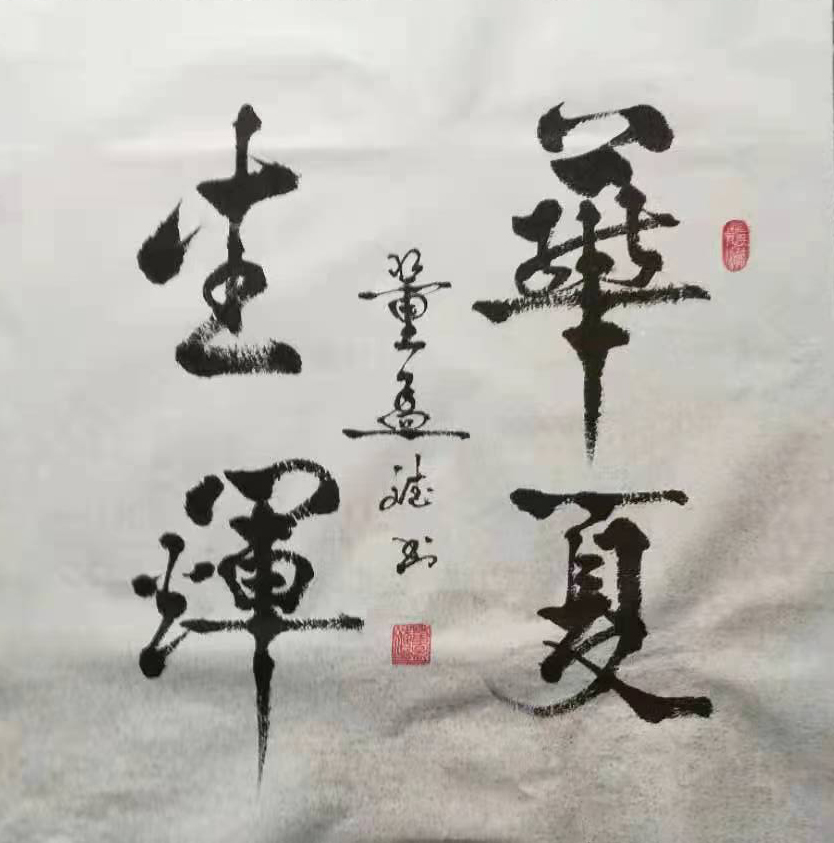 華夏
生輝
董孟